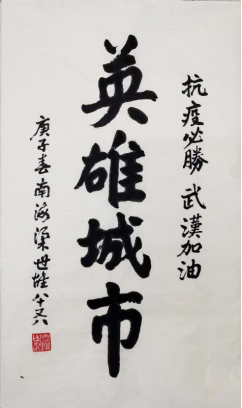 抗疫必勝 武漢加油
英雄城市
庚子春南海梁世雄八十又八